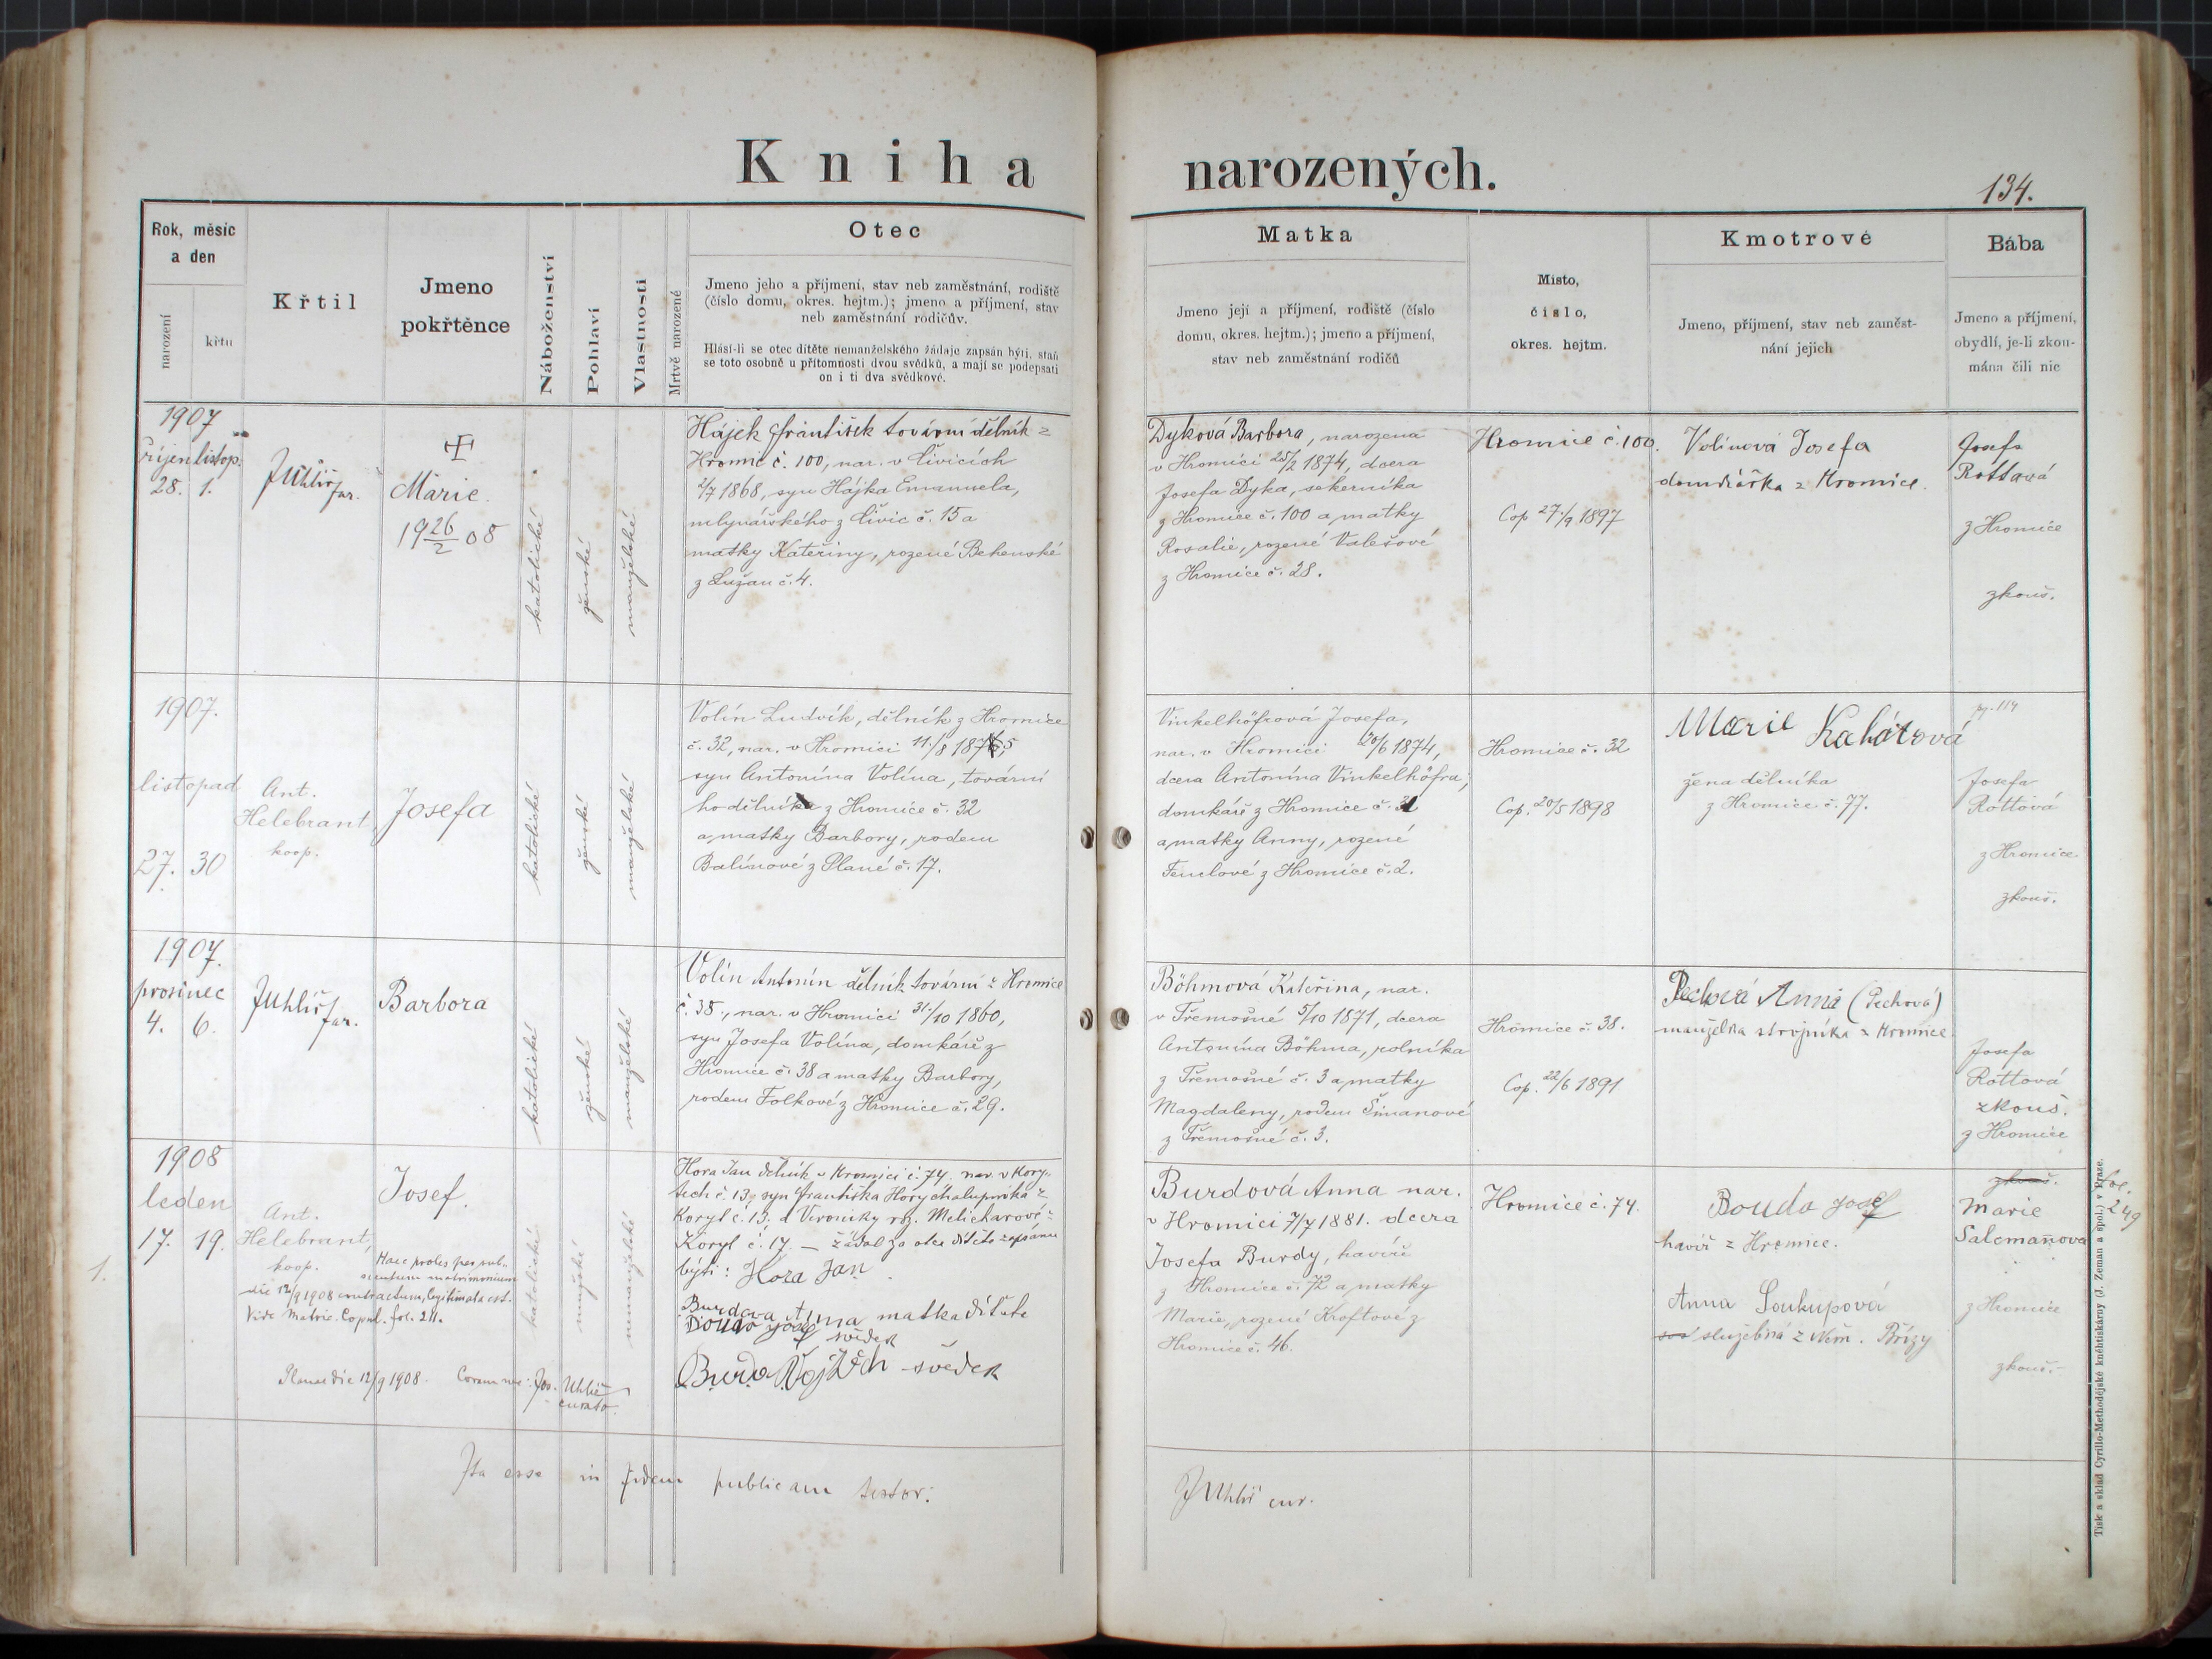 Kniha narozených.
134.
Rok, měsíc
a den
narození
křtu
Křtil
Jmeno
pokřtěnce
Náboženství
Pohlaví
Vlastnosti
Mrtvě narozené
Otec
Jmeno jeho a příjmení, stav neb zaměstnání, rodiště
(číslo domu, okres. hejtm.); jmeno a příjmení, stav
neb zaměstnání rodičův.
Hlásí-li se otec dítěte nemanželského žádaje zapsán býti, staň
se toto osobně u přítomnosti dvou svědků, a mají se podepsati
on i ti dva svědkové.
Matka
Jmeno její a příjmení, rodiště (číslo
domu, okres. hejtm.); jmeno a příjmení,
stav neb zaměstnání rodičů
Místo,
číslo,
okres. hejtm.
Kmotrové
Jmeno, příjmení, stav neb zaměst-
nání jejich
Bába
Jmeno a příjmení,
obydlí, je-li zkou-
mána čili nic
1907
říjen listop.
28. 1.
JUhlíř
far.
Marie.
19 26/2 08
katolické
ženské
manželské
Hájek František tovární dělník z
Hromic č. 100, nar. v Čívicích
2/7 1868, syn Hájka Emanuela,
mlynářského z Čivic č. 15 a
matky Kateřiny, rozené Behenské
z Lužan č. 4.
Dyková Barbora, narozena
v Hromici 25/2 1874, dcera
Josefa Dyka, sekerníka
z Hromice č. 100 a matky
Rosalie, rozené Valešové
z Hromice č. 28.
Hromice č. 100.
Cop 27./9 1897
Volínová Josefa
domkářka z Hromice.
Josefa
Rottová
z Hromice
zkouš.
1907.
listopad
27. 30
Ant.
Helebrant,
koop.
Josefa
katolické
ženské
manželské
Volín Ludvík, dělník z Hromice
č. 32, nar. v Hromici 11./8 1875,
syn Antonína Volína, tovární
ho dělníka z Hromice č. 32
a matky Barbory, rodem
Balínové z Plané č. 17.
Vinkelhöfrová Josefa,
nar. v Hromici 20/6 1874,
dcera Antonína Vinkelhöfra,
domkáře z Hromice č. 31
a matky Anny, rozené
Femlové z Hromice č. 2.
Hromice č. 32
Cop. 20/5 1898
Marie Kahátová
žena dělníka
z Hromice č. 77.
pg. 114
Josefa
Rottová
z Hromice
zkouš.
1907.
prosinec
4. 6.
JUhlíř
far.
Barbora
katolické
ženské
manželské
Volín Antonín dělník tovární z Hromice
č. 38., nar. v Hromici 31./10 1860,
syn Josefa Volína, domkáře z
Hromice č. 38 a matky Barbory,
rodem Folkové z Hromice č. 29.
Böhmová Kateřina, nar.
v Třemošné 5/10 1871, dcera
Antonína Böhma, rolníka
z Třemošné č. 3 a matky
Magdaleny, rodem Šimanové
z Třemošné č. 3.
Hromice č. 38.
Cop. 22/6 1891
Pechová Anna (Pechová)
manželka strojníka z Hromice
Josefa
Rottová
zkouš.
z Hromice
1908
leden
17. 19.
1.
Ant.
Helebrant,
koop.
Josef.
Haec proles per sub-
secutum matrimonium
die 12/9 1908 contractum, legitimata est.
Vide Matric. Copul. fol. 211.
Plana die 12/9 1908. Coram me: Jos. Uhlíř
curato.
katolické
mužské
nemanželské
Hora Jan dělník v Hromici č. 74. nar. v Kory-
tech č. 13, syn Františka Hory chalupníka z
Koryt č. 13. a Veroniky roz. Melicharové z
Koryt č. 17. — žádal za otce dítěte zapsánu
býti: Hora Jan.
Burdova Anna matka dítěte
Bouda Josef svědek
Burda Vojtěch svědek
Burdová Anna nar.
v Hromici 7/7 1881. dcera
Josefa Burdy, havíře
z Hromice č. 72 a matky
Marie, rozené Kroftové z
Hromice č. 46.
Hromice č. 74.
Bouda Josef
havíř z Hromice.
Anna Soukupová
služebná z Něm. Břízy
zkouš.
Marie
Salcmanova
z Hromice
zkouš.
fol.
249
Ita esse in fidem publicam testor: JUhlíř cur.
Tisk a sklad Cyrillo-Methodějské knihtiskárny (J. Zeman a spol.) v Praze.